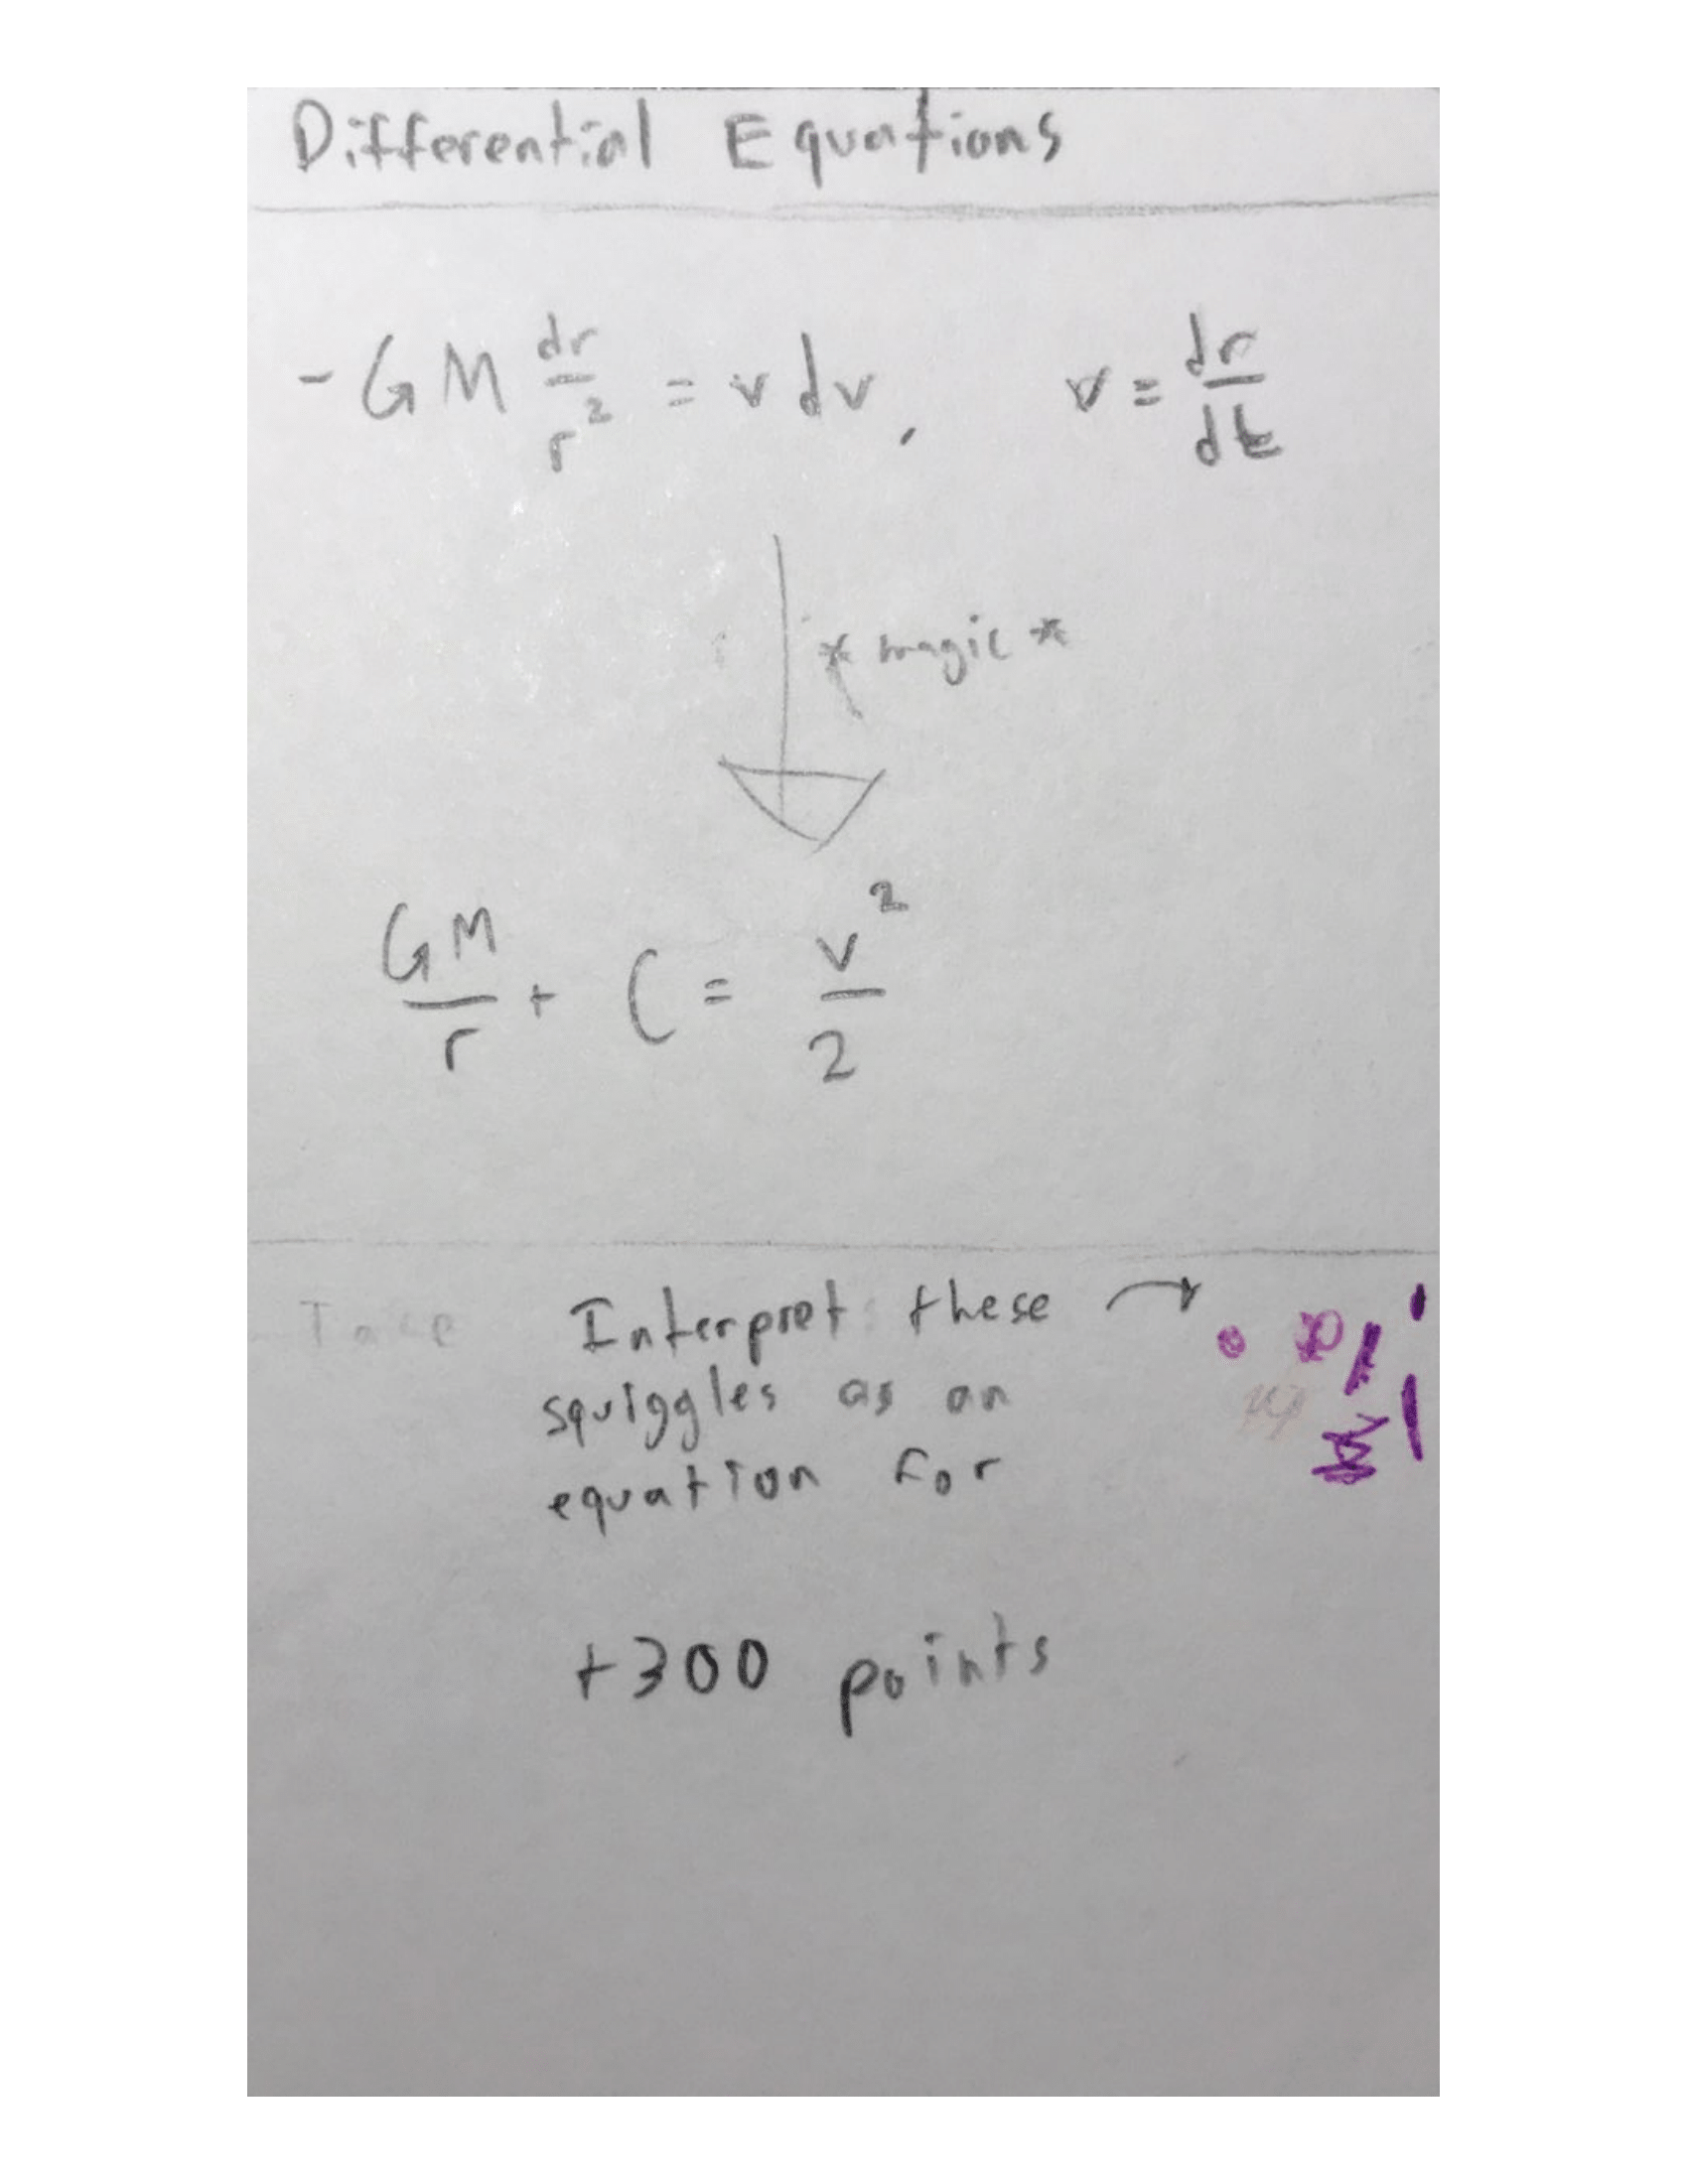 Differential Equations
- G M dr/r² = v dv, v = dr/dt
* magic *
GM/r + C = v²/2
Interpret these →
squiggles as an
equation for
+300 points